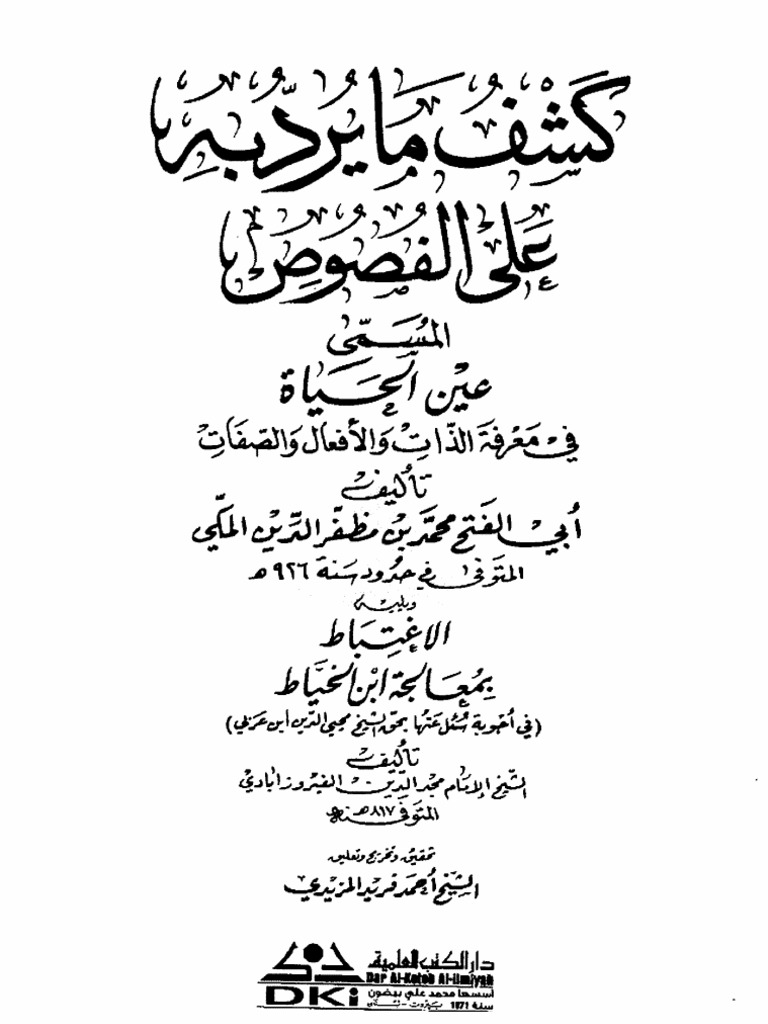 كَشْفُ مَا يُرَدُّ بِهِ
عَلَى الفُصُوصِ
المُسَمَّى
عَيْنَ الحَيَاةِ
فِي مَعْرِفَةِ الذَّاتِ وَالأَفْعَالِ وَالصِّفَاتِ
تأليف
أبي الفتح محمد بن مظفر الدين المكي
المتوفى في حدود سنة ٩٢٦ هـ
ويليه
الاغتباط
بمعالجة ابن الخياط
(في أجوبة سُئل عنها بحق الشيخ محيي الدين ابن عربي)
تأليف
الشيخ الإمام مجد الدين الفيروزآبادي
المتوفى سنة ٨١٧ هـ
تحقيق وتخريج وتعليق
الشيخ أحمد فريد المزيدي
دار الكتب العلمية
Dar Al-Kotob Al-Ilmiyah
DKi
أسسها محمد علي بيضون
سنة 1971 بيروت - لبنان